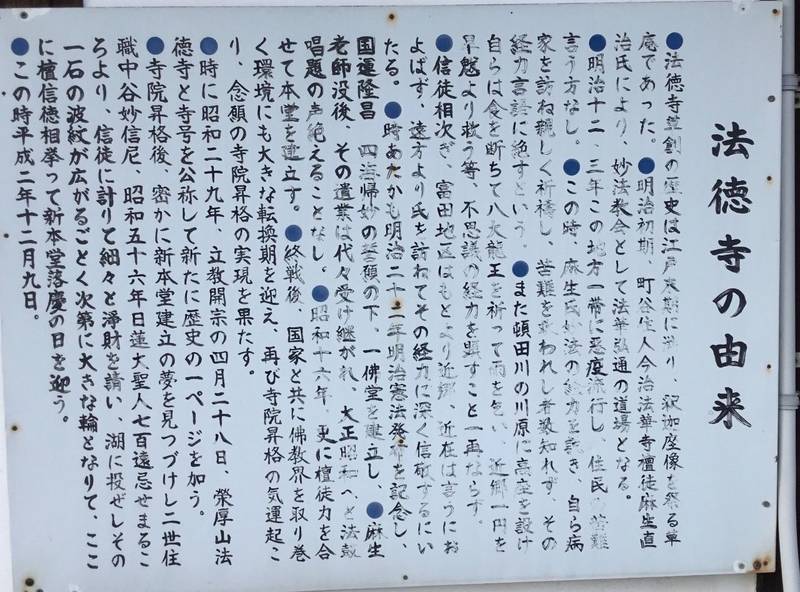 法徳寺の由来
●法徳寺草創の歴史は江戸末期に遡り、釈迦座像を祭る草
庵であった。●明治初期、町谷住人今治法華寺檀徒麻生直
治氏により、妙法教会として法華弘通の道場となる。
●明治十二、三年この地方一帯に悪疫流行し、住民の苦難
言う方なし。●この時、麻生氏妙法の経力を説き、自ら病
家を訪ね親しく祈祷し、苦難を救われし者数知れず、その
経力言語に絶すという。●また頓田川の川原に高座を設け
自らは食を断ちて八大龍王を祈って雨を乞い、近郷一円を
旱魃より救う等、不思議の経力を顕すこと一再ならず。
●信徒相次ぎ、富田地区はもとより近郷、近在は言うにお
よばず、遠方より氏を訪ねてその経力に深く信敬するにい
たる。●時あたかも明治二十二年明治憲法発布を記念し、
国運隆昌 四海帰妙の誓願の下、一佛堂を建立し、●麻生
老師没後、その遺業は代々受け継がれ、大正昭和へと法鼓
唱題の声絶えることなし。●昭和十六年、更に檀徒力を合
せて本堂を建立す。●終戦後、国家と共に佛教界を取り巻
く環境にも大きな転換期を迎え、再び寺院昇格の気運起こ
り、念願の寺院昇格の実現を果たす。
●時に昭和二十九年、立教開宗の四月二十八日、榮厚山法
徳寺と寺号を公称して新たに歴史の一ページを加う。
●寺院昇格後、密かに新本堂建立の夢を見つづけし二世住
職中谷妙信尼、昭和五十六年日蓮大聖人七百遠忌せまるこ
ろより、信徒に計りて細々と浄財を請い、湖に投ぜしその
一石の波紋が広がるごとく次第に大きな輪となりて、ここ
に檀信徒相挙って新本堂落慶の日を迎う。
●この時平成二年十二月九日。